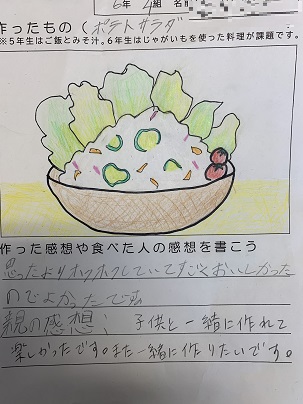 6年 4組 名前
作ったもの（ポテトサラダ
※5年生はご飯とみそ汁。6年生はじゃがいもを使った料理が課題です。
作った感想や食べた人の感想を書こう
思ったよりホクホクしていてすごくおいしかった
のでよかったです。
親の感想： 子供と一緒に作れて
楽しかったです。また一緒に作りたいです。